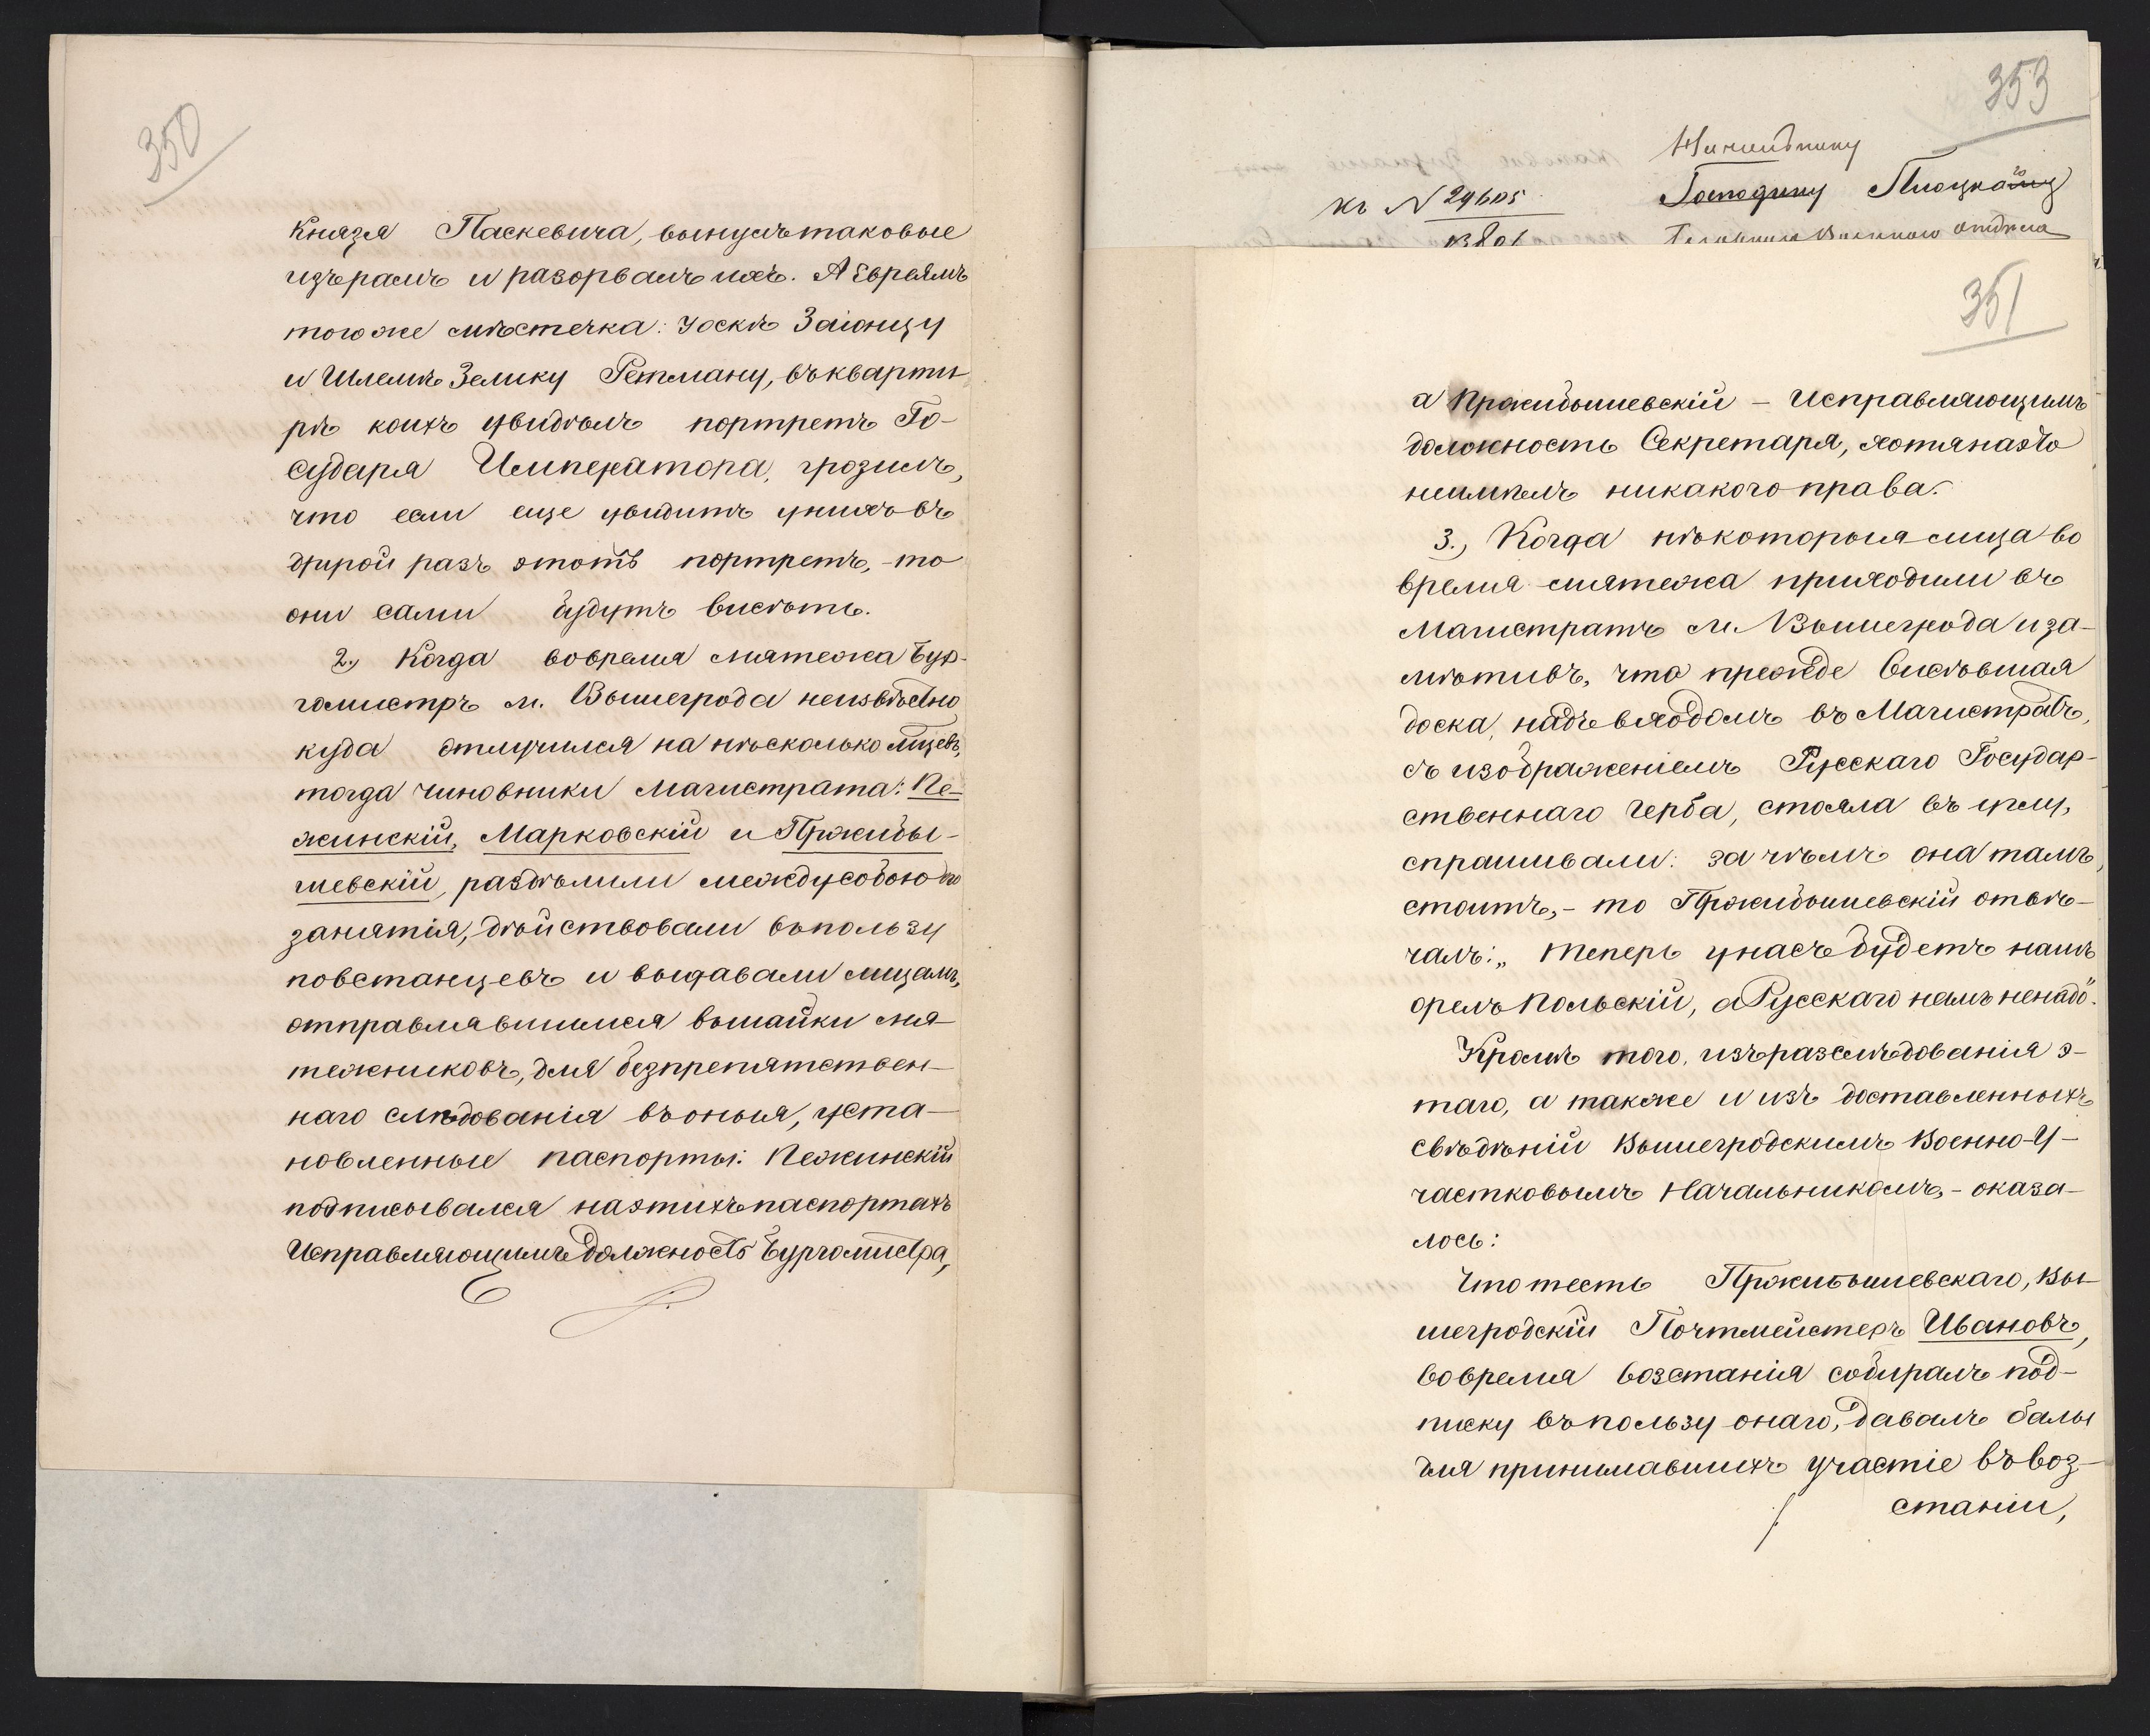 350
Князя Паскевича, вынулъ таковые
изъ рамъ и разорвалъ ихъ. А Евреямъ
того же мѣстечка: Іоскѣ Заіонцу
и Шлемѣ Зелику Ретману, въ кварти-
рѣ коихъ увидѣлъ портретъ Го-
сударя Императора, грозилъ,
что если еще увидитъ у нихъ въ
другой разъ этотъ портретъ, - то
они сами будутъ висѣть.
2., Когда во время мятежа Бур-
гомистръ м. Вышегрода неизвѣстно
куда отлучился на нѣсколько мѣсяцевъ,
тогда чиновники Магистрата: Пе-
жинскій, Марковскій и Пржибы-
шевскій, раздѣлили между собою его
занятія, дѣйствовали въ пользу
повстанцевъ и выдавали лицамъ,
отправлявшимся въ шайки мя-
тежниковъ, для безпрепятствен-
наго слѣдованія въ оныя, уста-
новленные паспорты: Пежинскій
подписывался на этихъ паспортахъ
Исправляющимъ должность Бургомистра,
353
Начальнику
къ № 29605 Господину Плоцкаго
Военнаго отдѣла
351
а Пржибышевскій - Исправляющимъ
должность Секретаря, хотя на это
неимѣлъ никакого права.
3., Когда нѣкоторыя лица во
время мятежа приходили въ
Магистратъ м. Вышегрода и за-
мѣтивъ, что прежде висѣвшая
доска, надъ входомъ въ Магистратъ,
съ изображеніемъ Русскаго Государ-
ственнаго герба, стояла въ углу,
спрашивали: за чѣмъ она тамъ
стоитъ, - то Пржибышевскій отвѣ-
чалъ: „Теперь у насъ будетъ нашъ
орелъ Польскій, а Русскаго намъ ненадо".
Кромѣ того, изъ разслѣдованія э-
таго, а также и изъ доставленныхъ
свѣдѣній Вышегродскимъ Военно-У-
частковымъ Начальникомъ, - оказа-
лось:
Что тесть Пржибышевскаго, Вы-
шегродскій Почтмейстеръ Ивановъ,
во время возстанія собиралъ под-
писку въ пользу онаго, давалъ балы
для принимавшихъ участіе въ воз-
станіи,